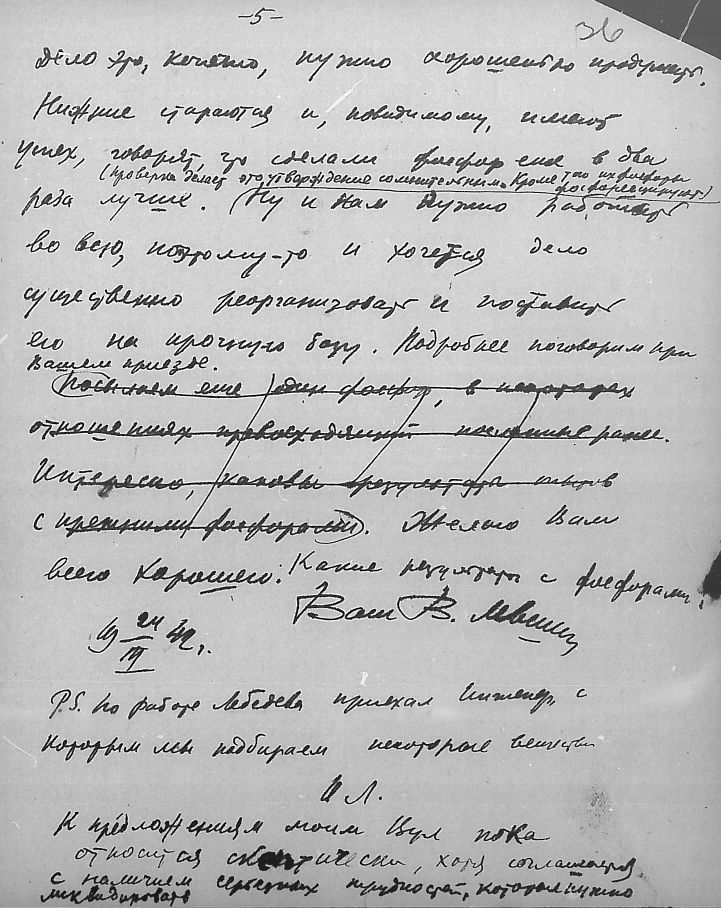 -5-
36
Дело это, конечно, нужно хорошенько продумать.
Нижние стараются и, повидимому, имеют
успех, говорят, что сделали фосфор еще в два
(проверка делает это утверждение сомнительным. Кроме того их фосфоры
фосфоресцируют)
раза лучше. (Ну и нам нужно работать
во всю, поэтому-то и хочется дело
существенно реорганизовать и поставить
его на прочную базу. Подробнее поговорим при
Вашем приезде.
(Посылаем еще один фосфор, в некоторых
отношениях превосходящий посланные ранее.
Интересно, каковы результаты опытов
с прежними фосфорами). Желаю Вам
всего хорошего. Какие результаты с фосфорами?
Ваш В. Левшин
24
III 42 г.
P.S. По работе Лебедева приехал инженер, с
которым мы подбираем некоторые вещества
К предложениям моим Вул пока
относится скептически, хотя соглашается
с наличием серьезных трудностей, которые нужно
ликвидировать